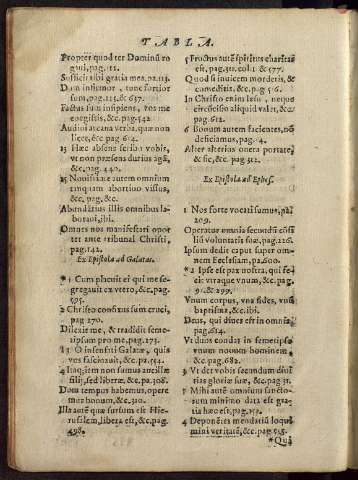 TABLA.
Propter quod ter Dominũ rogaui, pag.
Sufficit tibi gratia mea, pa.113.
Dum infirmor, tunc fortior
sum, pag.113. & 637.
Factus sum insipiens, vos me
coegistis, &c. pag. 542
Audiui arcana verba, quæ non
licet, &c pag. 614.
13 Hæc absens scribo vobis,
vt non præsens durius agã,
&c. pag. 440.
25 Nouissimè autem omnium
tanquam abortiuo visus,
&c. pag. &c.
Abundãtius illis omnibus laboraui, ibi.
Omnes nos manifestari oportet ante tribunal Christi,
pag. 142.
Ex Epistola ad Galatas.
1 *Cum placuit ei qui me segregauit ex vtero, &c. pag.
595.
2 Christo confixus sum cruci,
pag 270.
Dilexit me, & tradidit semetipsum pro me, pag. 173.
13 O insensati Galatæ, quis
vos fascinauit, &c. pa. 554.
4 Itaq; iam non sumus ancillæ
filij, sed liberæ, &c. pa. 308.
Dum tempus habemus, operemur bonum, &c. 310.
Illa autẽ quæ sursum est Hierusalem, libera est, &c. pag.
498.
5 Fructus autẽ spiritus charitas
est, pag. 311. col. 1. & 577.
Quod si inuicem mordetis, &
comeditis, &c. pag 516.
In Christo enim Iesu, neque
circũcisio aliquid valet, &c.
pag. 612.
6 Bonum autem facientes, nõ
deficiamus, pag. 4.
Alter alterius onera portate,
& sic, &c. pag 312.
Ex Epistola ad Ephes.
1 Nos sorte vocati sumus, pa.
209.
Operatur omnia secundũ cõsilij voluntatis suæ, pag. 226.
Ipsum dedit caput super omnem Ecclesiam, pa. 600.
*2 Ipse est pax nostra, qui fecit vtraque vnum, &c. pag.
91. & 299.
Vnum corpus, vna fides, vnũ
baptisma, &c. ibi.
Deus, qui diues est in omnia,
pag. 614.
Vt duos condat in semetipsum
vnum nouum hominem,
&c. pag. 682.
3 Vt det vobis secundum diuitias gloriæ suæ, &c. pag. 51.
5 Mihi autẽ omnium sanctorum minimo data est gratia hæc est, pag. 153.
4 Deponẽtes mendatiũ loquimini veritatẽ, &c. pag. 515.
* Quã